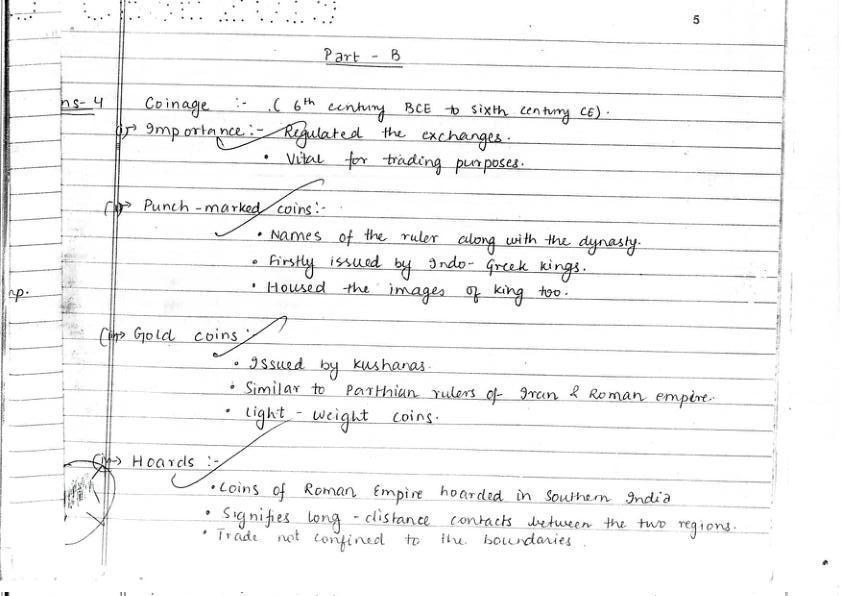 5
Part - B
ns-4 Coinage :- ( 6th century BCE to sixth century CE).
(i)→ Importance :- Regulated the exchanges.
• Vital for trading purposes.
(ii)→ Punch-marked coins:-
• Names of the ruler along with the dynasty.
• Firstly issued by Indo-Greek kings.
• Housed the images of king too.
np.
(iii)→ Gold coins:
• Issued by Kushanas.
• Similar to Parthian rulers of Iran & Roman empire.
• Light-weight coins.
(iv)→ Hoards :-
• Coins of Roman Empire hoarded in Southern India
• Signifies long-distance contacts between the two regions.
• Trade not confined to the boundaries.